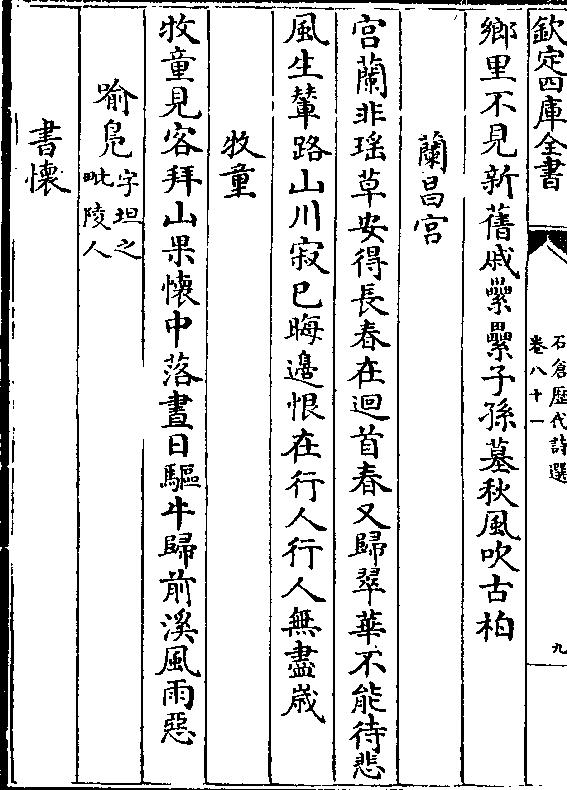 欽定四庫全書
石倉歷代詩選
卷八十一
九
鄉里不見新舊戚纍纍子孫墓秋風吹古柏
蘭昌宮
宮蘭非瑶草安得長春在迴首春又歸翠華不能待悲
風生輦路山川寂已晦邊恨在行人行人無盡歲
牧童
牧童見客拜山果懷中落晝日驅牛歸前溪風雨惡
喻鳧字坦之毗陵人
書懷